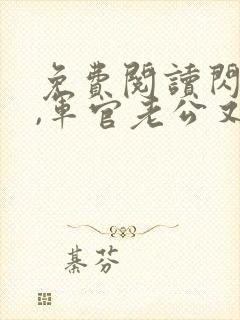 免費閱讀閃
,軍官老公又
綦芬